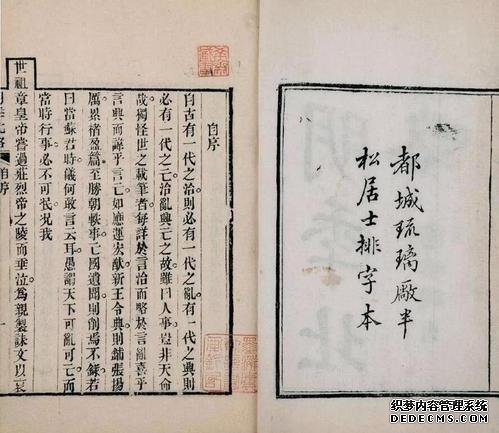 都城琉璃廠半
松居士排字本
自序
自古有一代之治則必有一代之亂有一代之興則
必有一代之亡治亂興亡之故雖曰人事豈非天命
哉獨怪世之載筆者每詳於言治而略於言亂喜乎
言興而諱乎言亡如應運矣猷新王令典則鋪張揚
厲累楮盈篇至勝朝軼事亡國遺聞則削焉不錄若
曰當蘇君時儀何敢言云耳愚謂天下可亂可亡而
當時行事必不可泯况我
世祖章皇帝嘗過莊烈帝之陵而垂泣爲親製誄文以哀
北略 自序 一
织梦内容管理系统
DEDECMS.COM